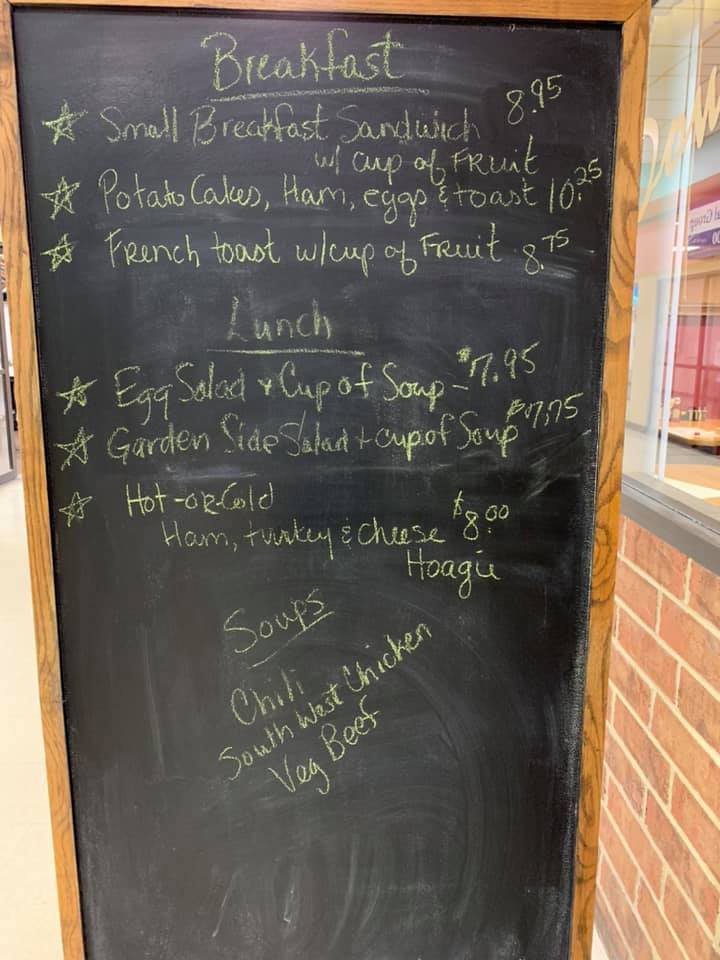 Breakfast
☆ Small Breakfast Sandwich 8.95
w/ cup of FRUIT
☆ Potato Cakes, Ham, eggs & toast 10.25
☆ FRench toast w/cup of FRuit 8.75
Lunch
☆ Egg Salad + Cup of Soup - $7.95
☆ Garden Side Salad + cup of Soup $7,75
☆ Hot-OR-Cold
Ham, turkey & cheese $8.00
Hoagie
Soups
Chili
South West Chicken
Veg Beef